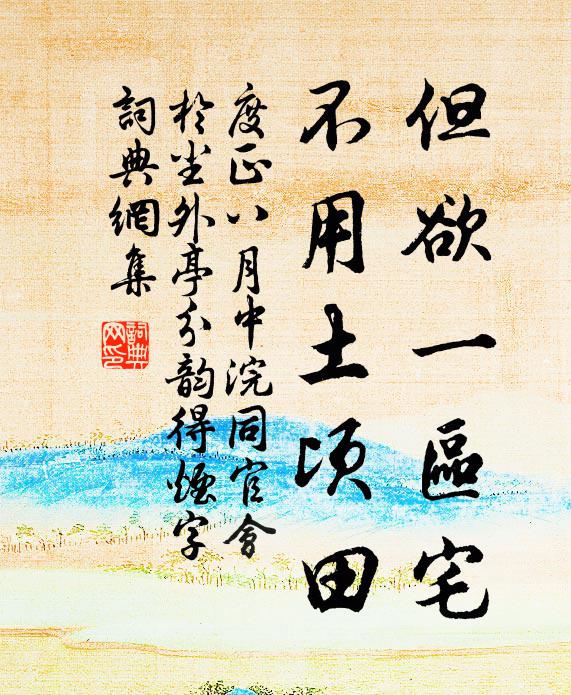 但欲一區宅
不用土頃田
度正八月中浣同官會
於尘外亭分韵得煙字
詞典網集
詞典网印